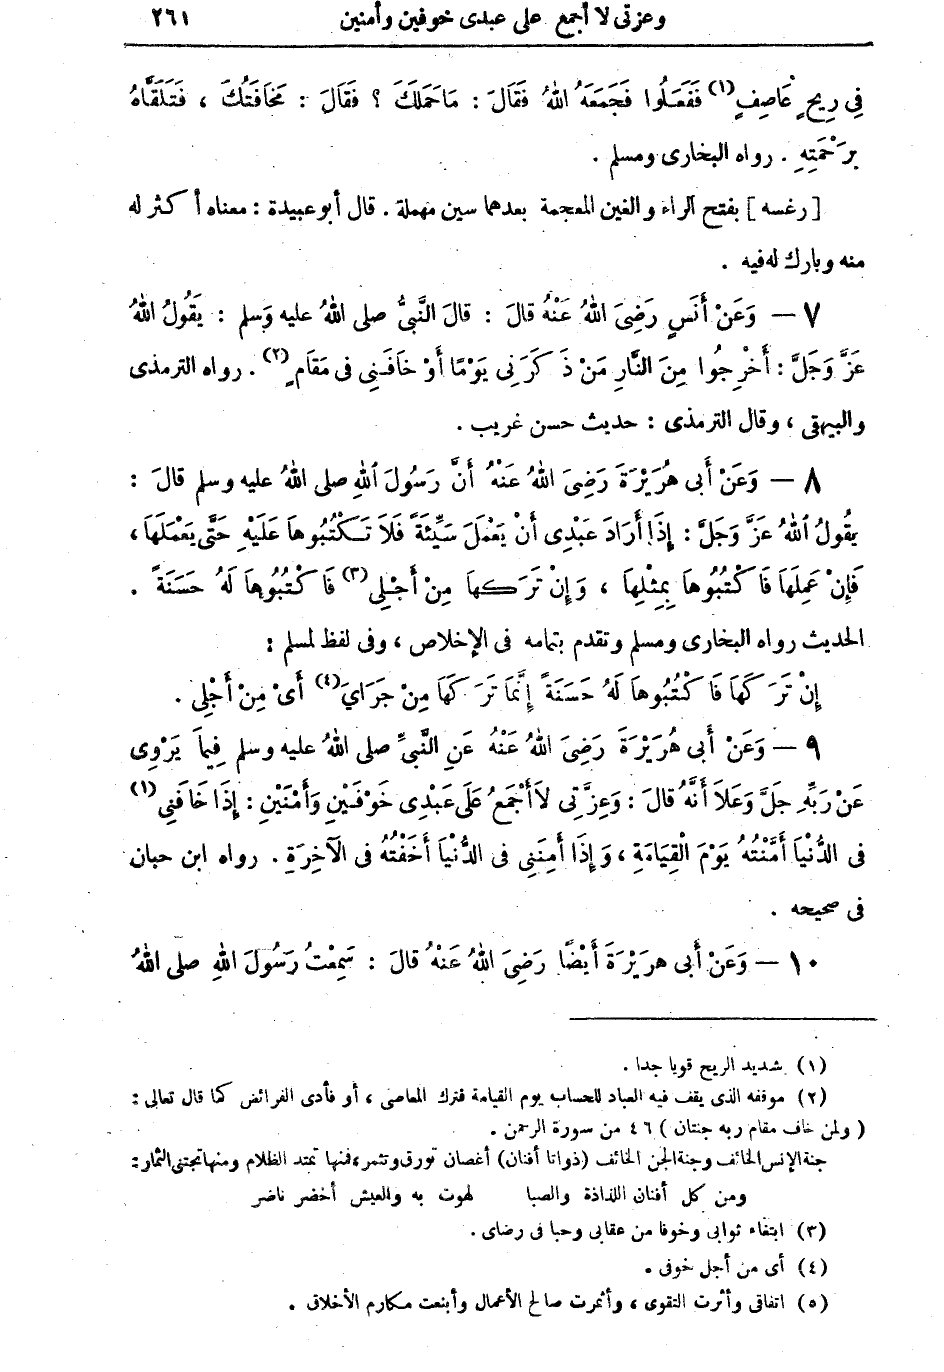 وعزتى لا أجمع على عبدى خوفين وأمنين ٢٦١
فِى رِيحٍ عَاصِفٍ(١) فَفَعَلُوا فَجَمَعَهُ اللهُ فَقَالَ : مَاحَمَلَكَ ؟ فَقَالَ : مَخَافَتُكَ ، فَتَلَقَّاهُ
بِرَحْمَتِهِ . رواه البخارى ومسلم .
[ رغسه ] بفتح الراء والغين المعجمة بعدهما سين مهملة . قال أبو عبيدة : معناه أكثر له
منه وبارك له فيه .
٧ — وَعَنْ أَنَسٍ رَضِىَ اللهُ عَنْهُ قَالَ : قَالَ النَّبِىُّ صلى اللهُ عليه وَسلم : يَقُولُ اللهُ
عَزَّ وَجَلَّ : أَخْرِجُوا مِنَ النَّارِ مَنْ ذَكَرَنِى يَوْمًا أَوْ خَافَنِى فى مَقَامٍ(٢) . رواه الترمذى
والبيهقى ، وقال الترمذى : حديث حسن غريب .
٨ — وَعَنْ أَبى هُرَيْرَةَ رَضِىَ اللهُ عَنْهُ أَنَّ رَسُولَ اللهِ صلى اللهُ عليه وسلم قالَ :
يقُولُ اللهُ عَزَّ وَجَلَّ : إِذَا أَرَادَ عَبْدِى أَنْ يَعْمَلَ سَيِّئَةً فَلاَ تَكْتُبُوهَا عَلَيْهِ حَتَّى يَعْمَلَهَا ،
فَإِنْ عَمِلَهَا فَاكْتُبُوهَا بِمِثْلِهَا ، وَإِنْ تَرَكهَا مِنْ أَجْلِى(٣) فَاكْتُبُوهَا لَهُ حَسَنَةً .
الحديث رواه البخارى ومسلم وتقدم بتمامه فى الإخلاص ، وفى لفظ لمسلم :
إِنْ تَرَكَهَا فَاكْتُبُوهَا لَهُ حَسَنَةً إِنَّمَا تَرَكَهَا مِنْ جَرَاىَ(٤) أَىْ مِنْ أَجْلِى .
٩ — وَعَنْ أَبى هُرَيْرَةَ رَضِىَ اللهُ عَنْهُ عَنِ النَّبِىِّ صلى اللهُ عليه وسلم فِيمَا يَرْوِى
عَنْ رَبِّهِ جَلَّ وَعَلاَ أَنَّهُ قالَ : وَعِزَّتِى لاَ أَجْمَعُ عَلَى عَبْدِى خَوْفَيْنِ وَأَمْنَيْنِ : إِذَا خَافَنِى(١)
فى الدُّنْيَا أَمَّنْتُهُ يَوْمَ الْقِيَامَةِ ، وَإِذَا أَمِنَنِى فى الدُّنْيَا أَخَفْتُهُ فى الآخِرَةِ . رواه ابن حبان
فى صحيحه .
١٠ — وَعَنْ أَبى هرَيْرَةَ أَيْضًا رَضِىَ اللهُ عَنْهُ قالَ : سَمِعْتُ رَسُولَ اللهِ صلى اللهُ
(١) شديد الريح قويا جدا .
(٢) موقفه الذى يقف فيه العباد للحساب يوم القيامة فترك المعاصى ، أو فأدى الفرائض كما قال تعالى :
( ولمن خاف مقام ربه جنتان ) ٤٦ من سورة الرحمن .
جنة الإنس الخائف وجنة الجن الخائف (ذواتا أفنان) أغصان تورق وتثمر، فمنها تمتد الظلام ومنها تجتنى الثمار :
ومن كل أفنان اللذاذة والصبا لهوت به والعيش أخضر ناضر
(٣) ابتغاء ثوابى وخوفا من عقابى وحبا فى رضاى .
(٤) أى من أجل خوفى .
(٥) اتفاقى وأثرت التقوى ، وأثمرت صالح الأعمال وأينعت مكارم الأخلاق .